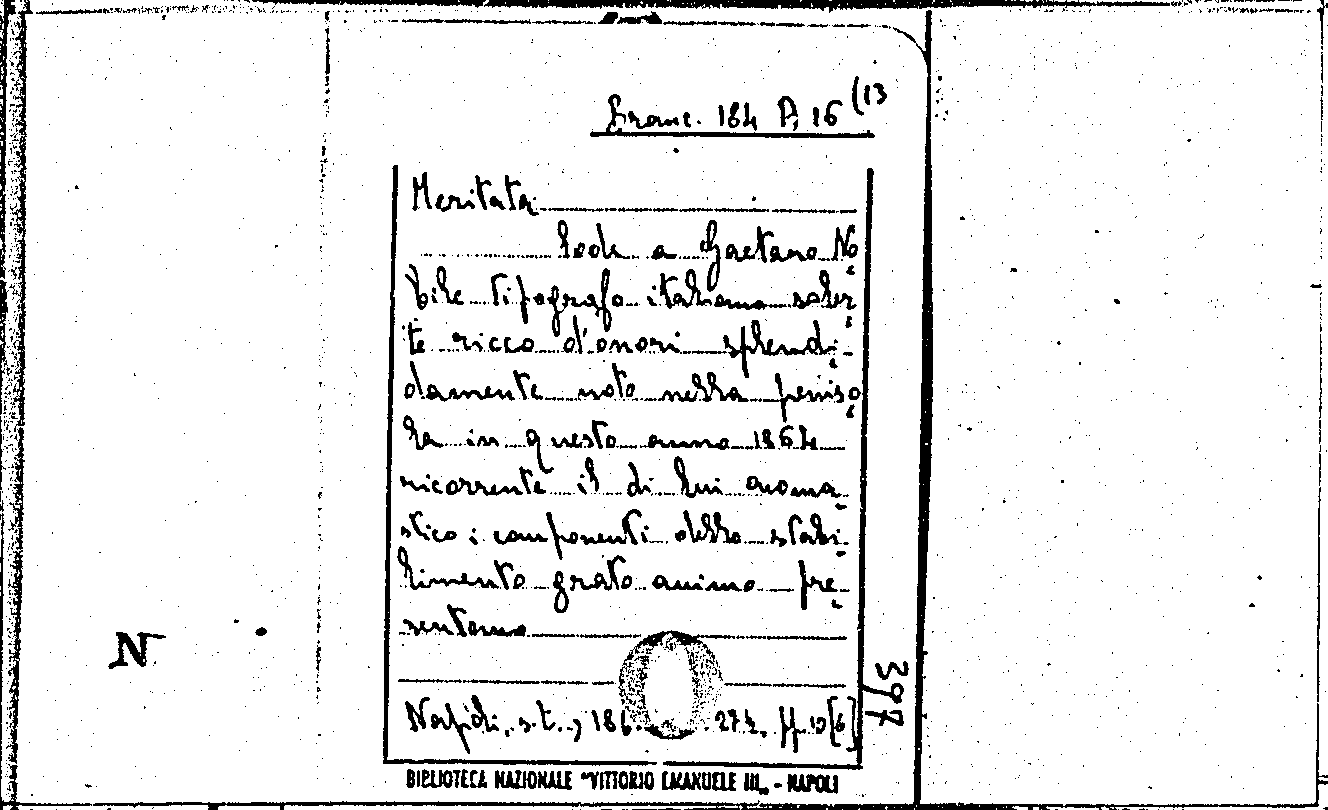 Branc. 184 P, 16 (13
Meritata
lode a Gaetano No
bile tipografo italiano soler
te ricco d'onori splendi-
damente noto nella peniso
la in questo anno 1864
ricorrente il di lui onoma-
stico i componenti dello stabi-
limento grato animo pre-
sentano
Napoli, s.t., 186 27 pp. 10 [6]
397
N
BIBLIOTECA NAZIONALE "VITTORIO EMANUELE III„ - NAPOLI